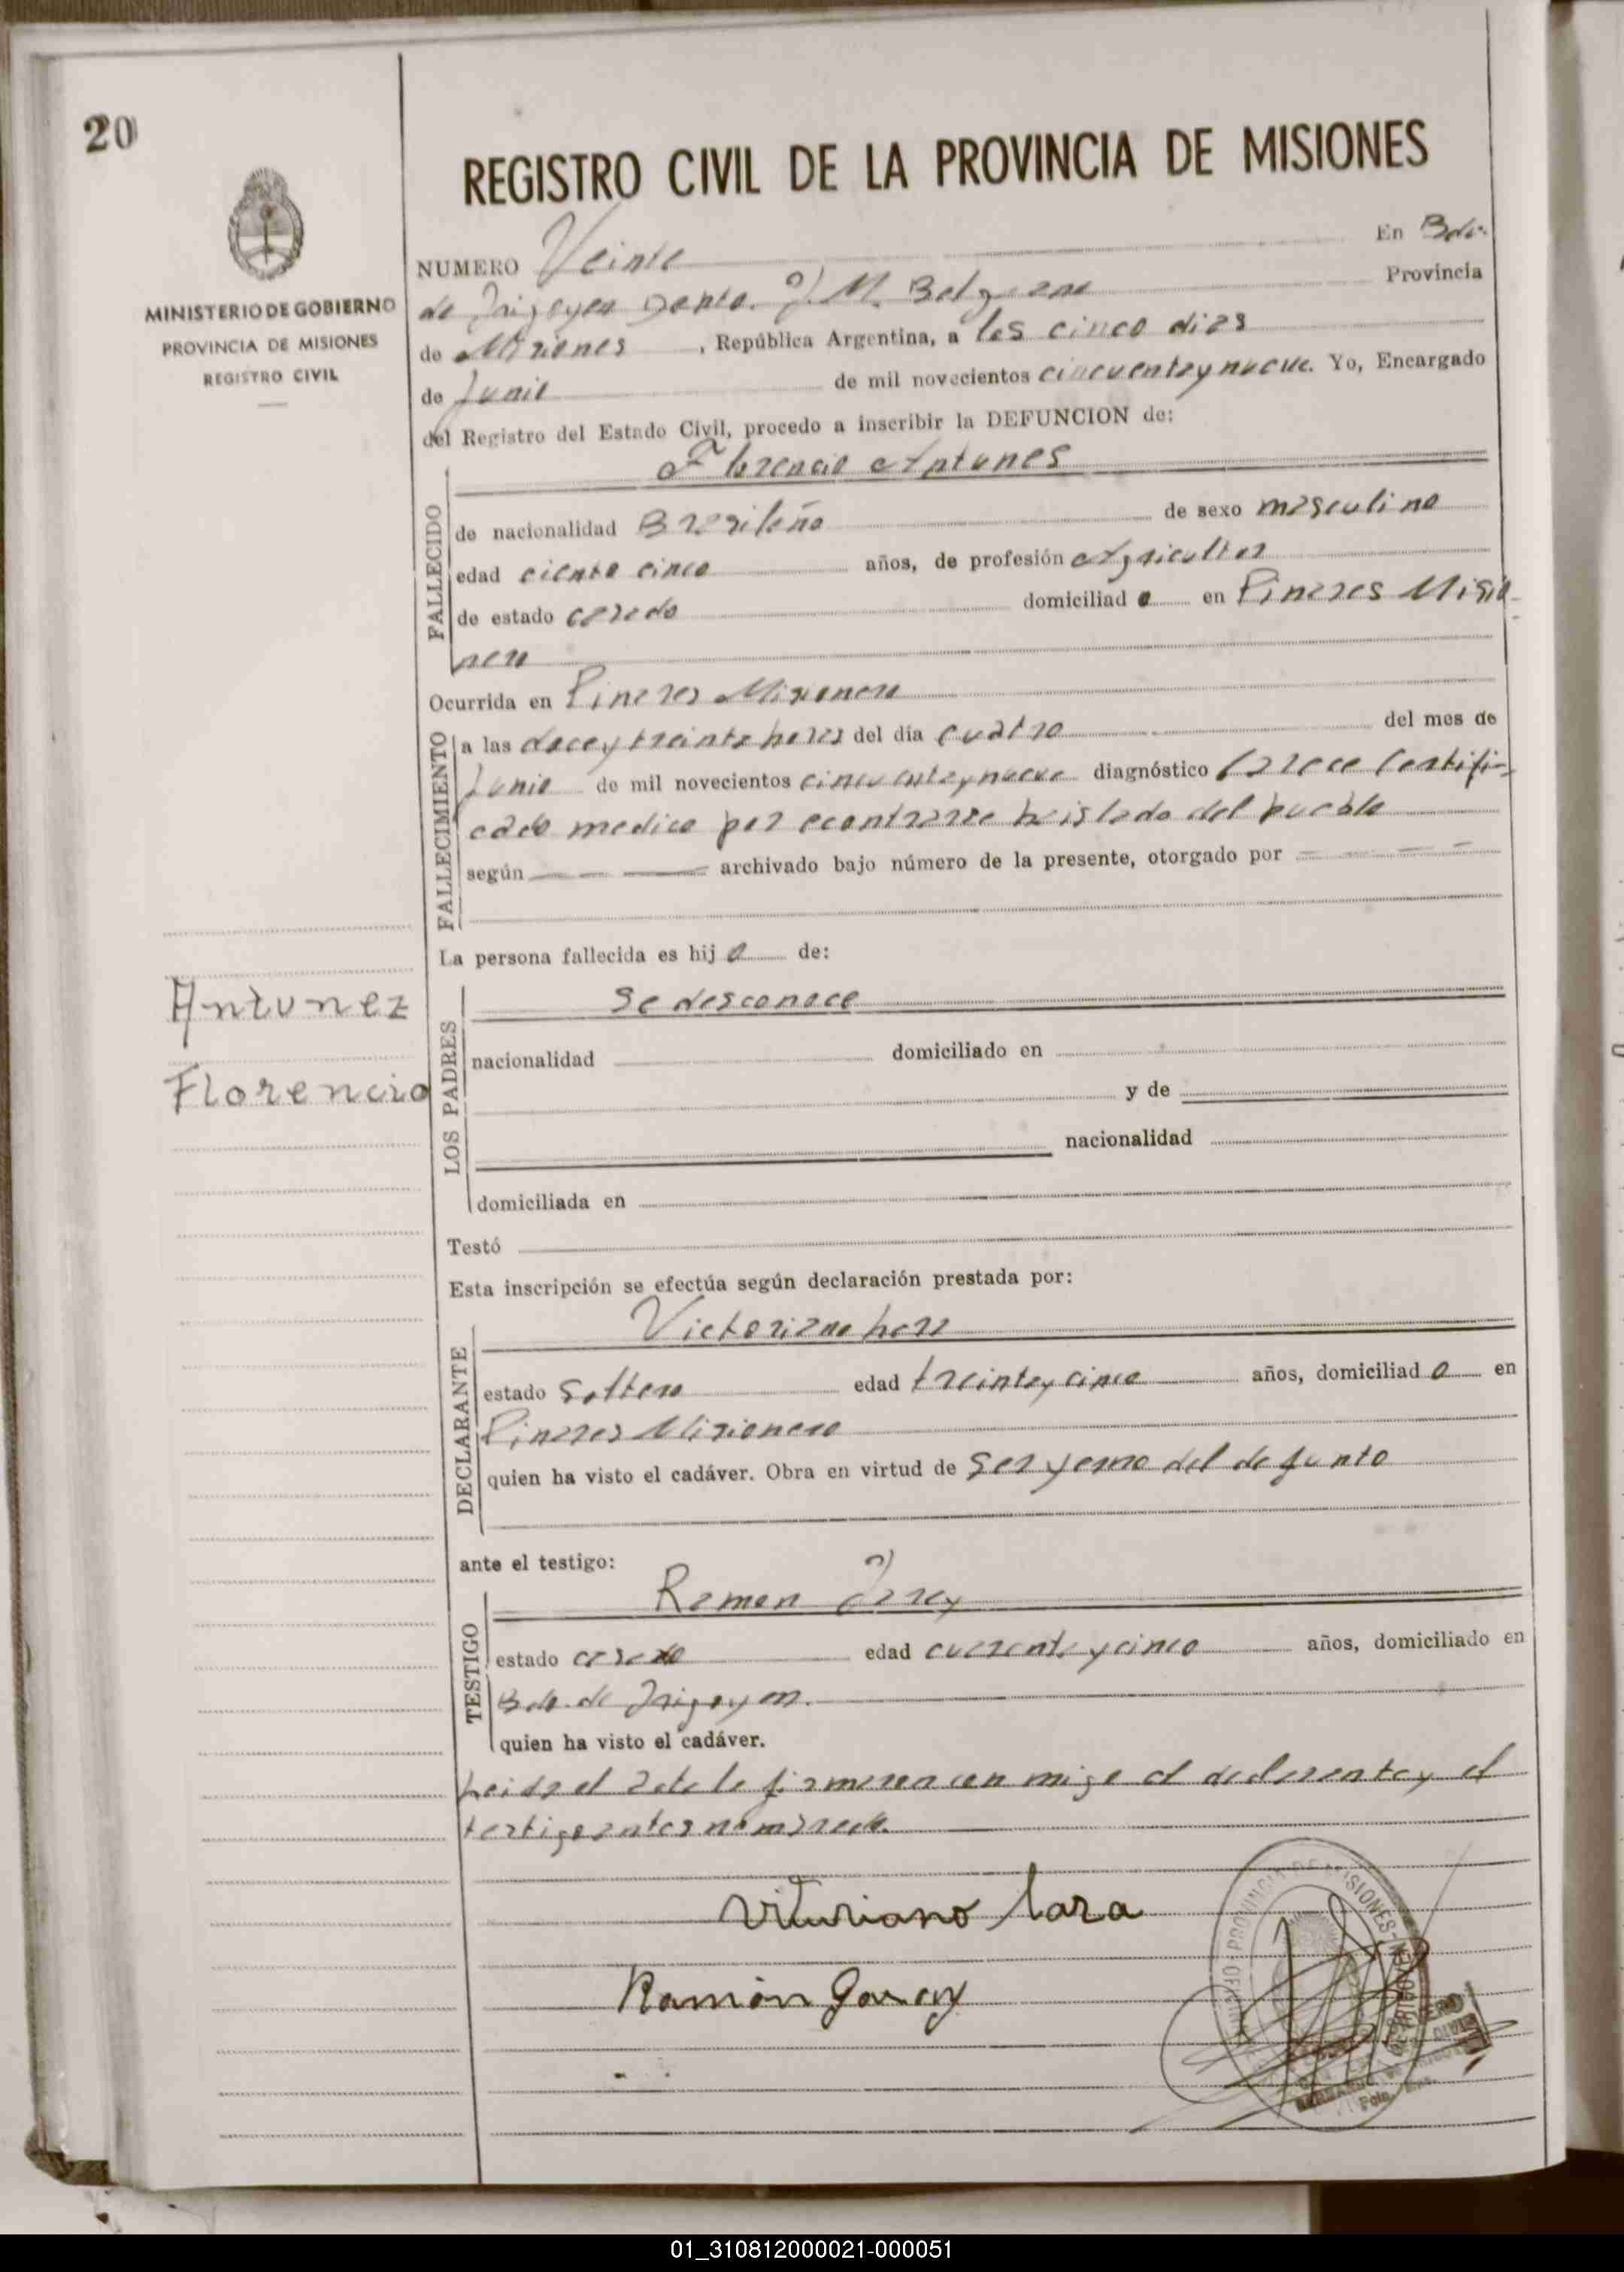 20
REGISTRO CIVIL DE LA PROVINCIA DE MISIONES
MINISTERIO DE GOBIERNO
PROVINCIA DE MISIONES
REGISTRO CIVIL
NUMERO Veinte En Bdo.
de Irigoyen Dpto. G. M. Belgrano Provincia
de Misiones , República Argentina, a los cinco dias
de Junio de mil novecientos cincuentaynueve. Yo, Encargado
del Registro del Estado Civil, procedo a inscribir la DEFUNCION de:
Florencio Antunes
FALLECIDO
de nacionalidad Brasileño de sexo masculino
edad ciento cinco años, de profesión Agricultor
de estado casado domiciliad o en Pinares Misio-
nero
Ocurrida en Pinares Misionero
FALLECIMIENTO
a las doce y treinta horas del día cuatro del mes de
Junio de mil novecientos cincuentaynueve diagnóstico Carece Certifi-
cado medico por econtrarse haislado del pueblo
según archivado bajo número de la presente, otorgado por
La persona fallecida es hij o de:
Se desconoce
LOS PADRES
nacionalidad domiciliado en
y de
nacionalidad
domiciliada en
Testó
Esta inscripción se efectúa según declaración prestada por:
Victoriano Lara
DECLARANTE
estado Soltero edad treinta y cinco años, domiciliad o en
Pinares Misionero
quien ha visto el cadáver. Obra en virtud de Ser yerno del defunto
ante el testigo:
Ramon Garay
TESTIGO
estado casado edad cuarenta y cinco años, domiciliado en
Bdo. de Irigoyen.
quien ha visto el cadáver.
Leida el acta la firmaron con migo el declarante y el
testigo antes nombrado.
Antunez
Florencio
Vituriano lara
Ramón Garay
PROVINCIA DE MISIONES
01_310812000021-000051